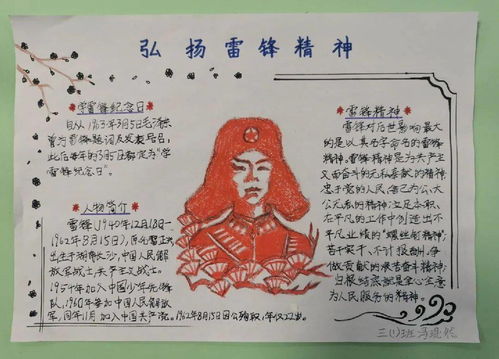 弘扬雷锋精神
学雷锋纪念日
自从1963年3月5日毛泽东
曾为雷锋题词及发表后,
此后每年的3月5日都定为"学
雷锋纪念日"。
人物简介
雷锋(1940年12月18日—
1962年8月15日),原名雷正兴
出生于湖南长沙,中国人民解
放军战士,共产主义战士。
1954年加入中国少年先锋
队,1960年参加中国人民解放
军,同年11月加入中国共产党。1962年8月15日因公殉职,年仅22岁。
雷锋精神
雷锋对后世影响最大
的是以其名字命名的雷锋
精神。雷锋精神是为共产主
义而奋斗的无私奉献的精神
忠于党的人民,舍己为公、大
公无私的精神;立足本职、
在平凡的工作中创造出不
平凡业绩的"螺丝钉精神";
苦干实干、不计报酬,争
做贡献的艰苦奋斗精神;
归根结底就是全心全意
为人民服务的精神。
三(1)班